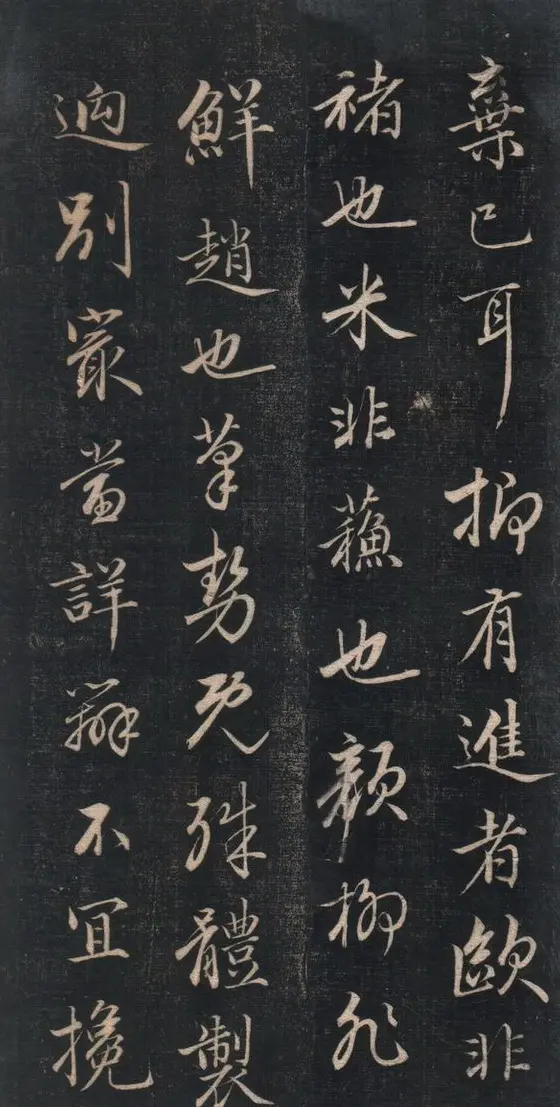 棄已耳抑有進者歐非
褚也米非蘓也顏栁非
鮮趙也筆勢既殊體製
迥別最當詳辨不宜攙